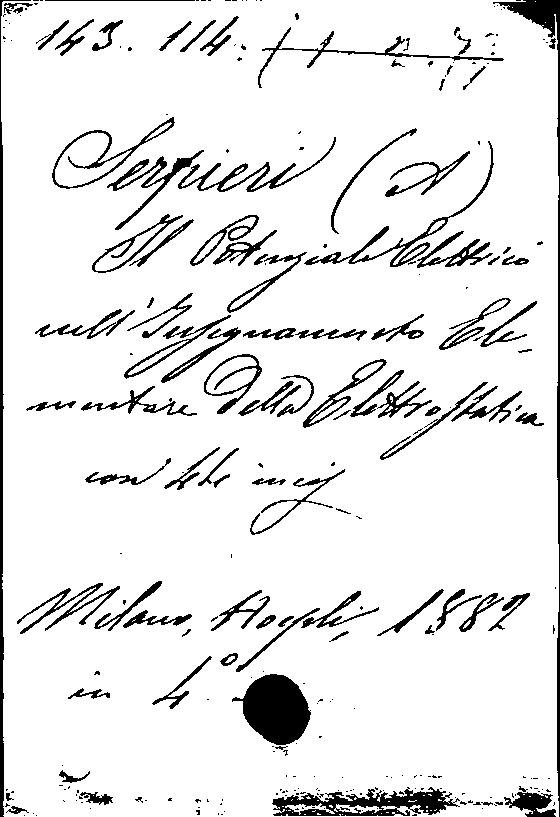 143. 114:
Serpieri (A)
Il Potenziale Elettrico
nell'Insegnamento Ele-
mentare della Elettrostatica
con incis
Milano, Hoepli, 1882
in 4°